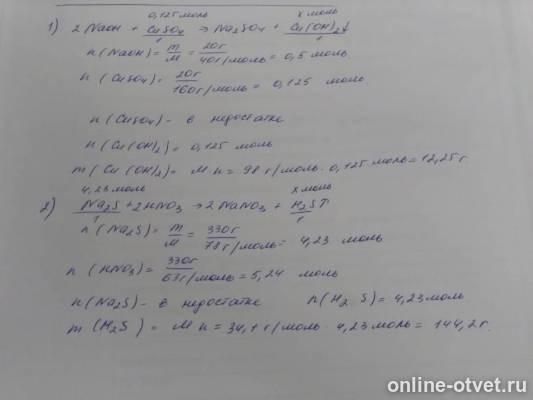 0,125 моль x моль
1) 2 NaOH + CuSO4 → Na2SO4 + Cu(OH)2↓
1 1
n (NaOH) = m/M = 20г/40г/моль = 0,5 моль
n (CuSO4) = 20г/160г/моль = 0,125 моль
n (CuSO4) - в недостатке
n (Cu(OH)2) = 0,125 моль
m (Cu(OH)2) = M·n = 98 г/моль · 0,125 моль = 12,25 г.
4,23 моль x моль
2) Na2S + 2HNO3 → 2NaNO3 + H2S↑
1 1
n (Na2S) = m/M = 330г/78г/моль = 4,23 моль
n (HNO3) = 330г/63г/моль = 5,24 моль
n (Na2S) - в недостатке n (H2S) = 4,23 моль
m (H2S) = M·n = 34,1 г/моль · 4,23 моль = 144,2 г.
online-otvet.ru